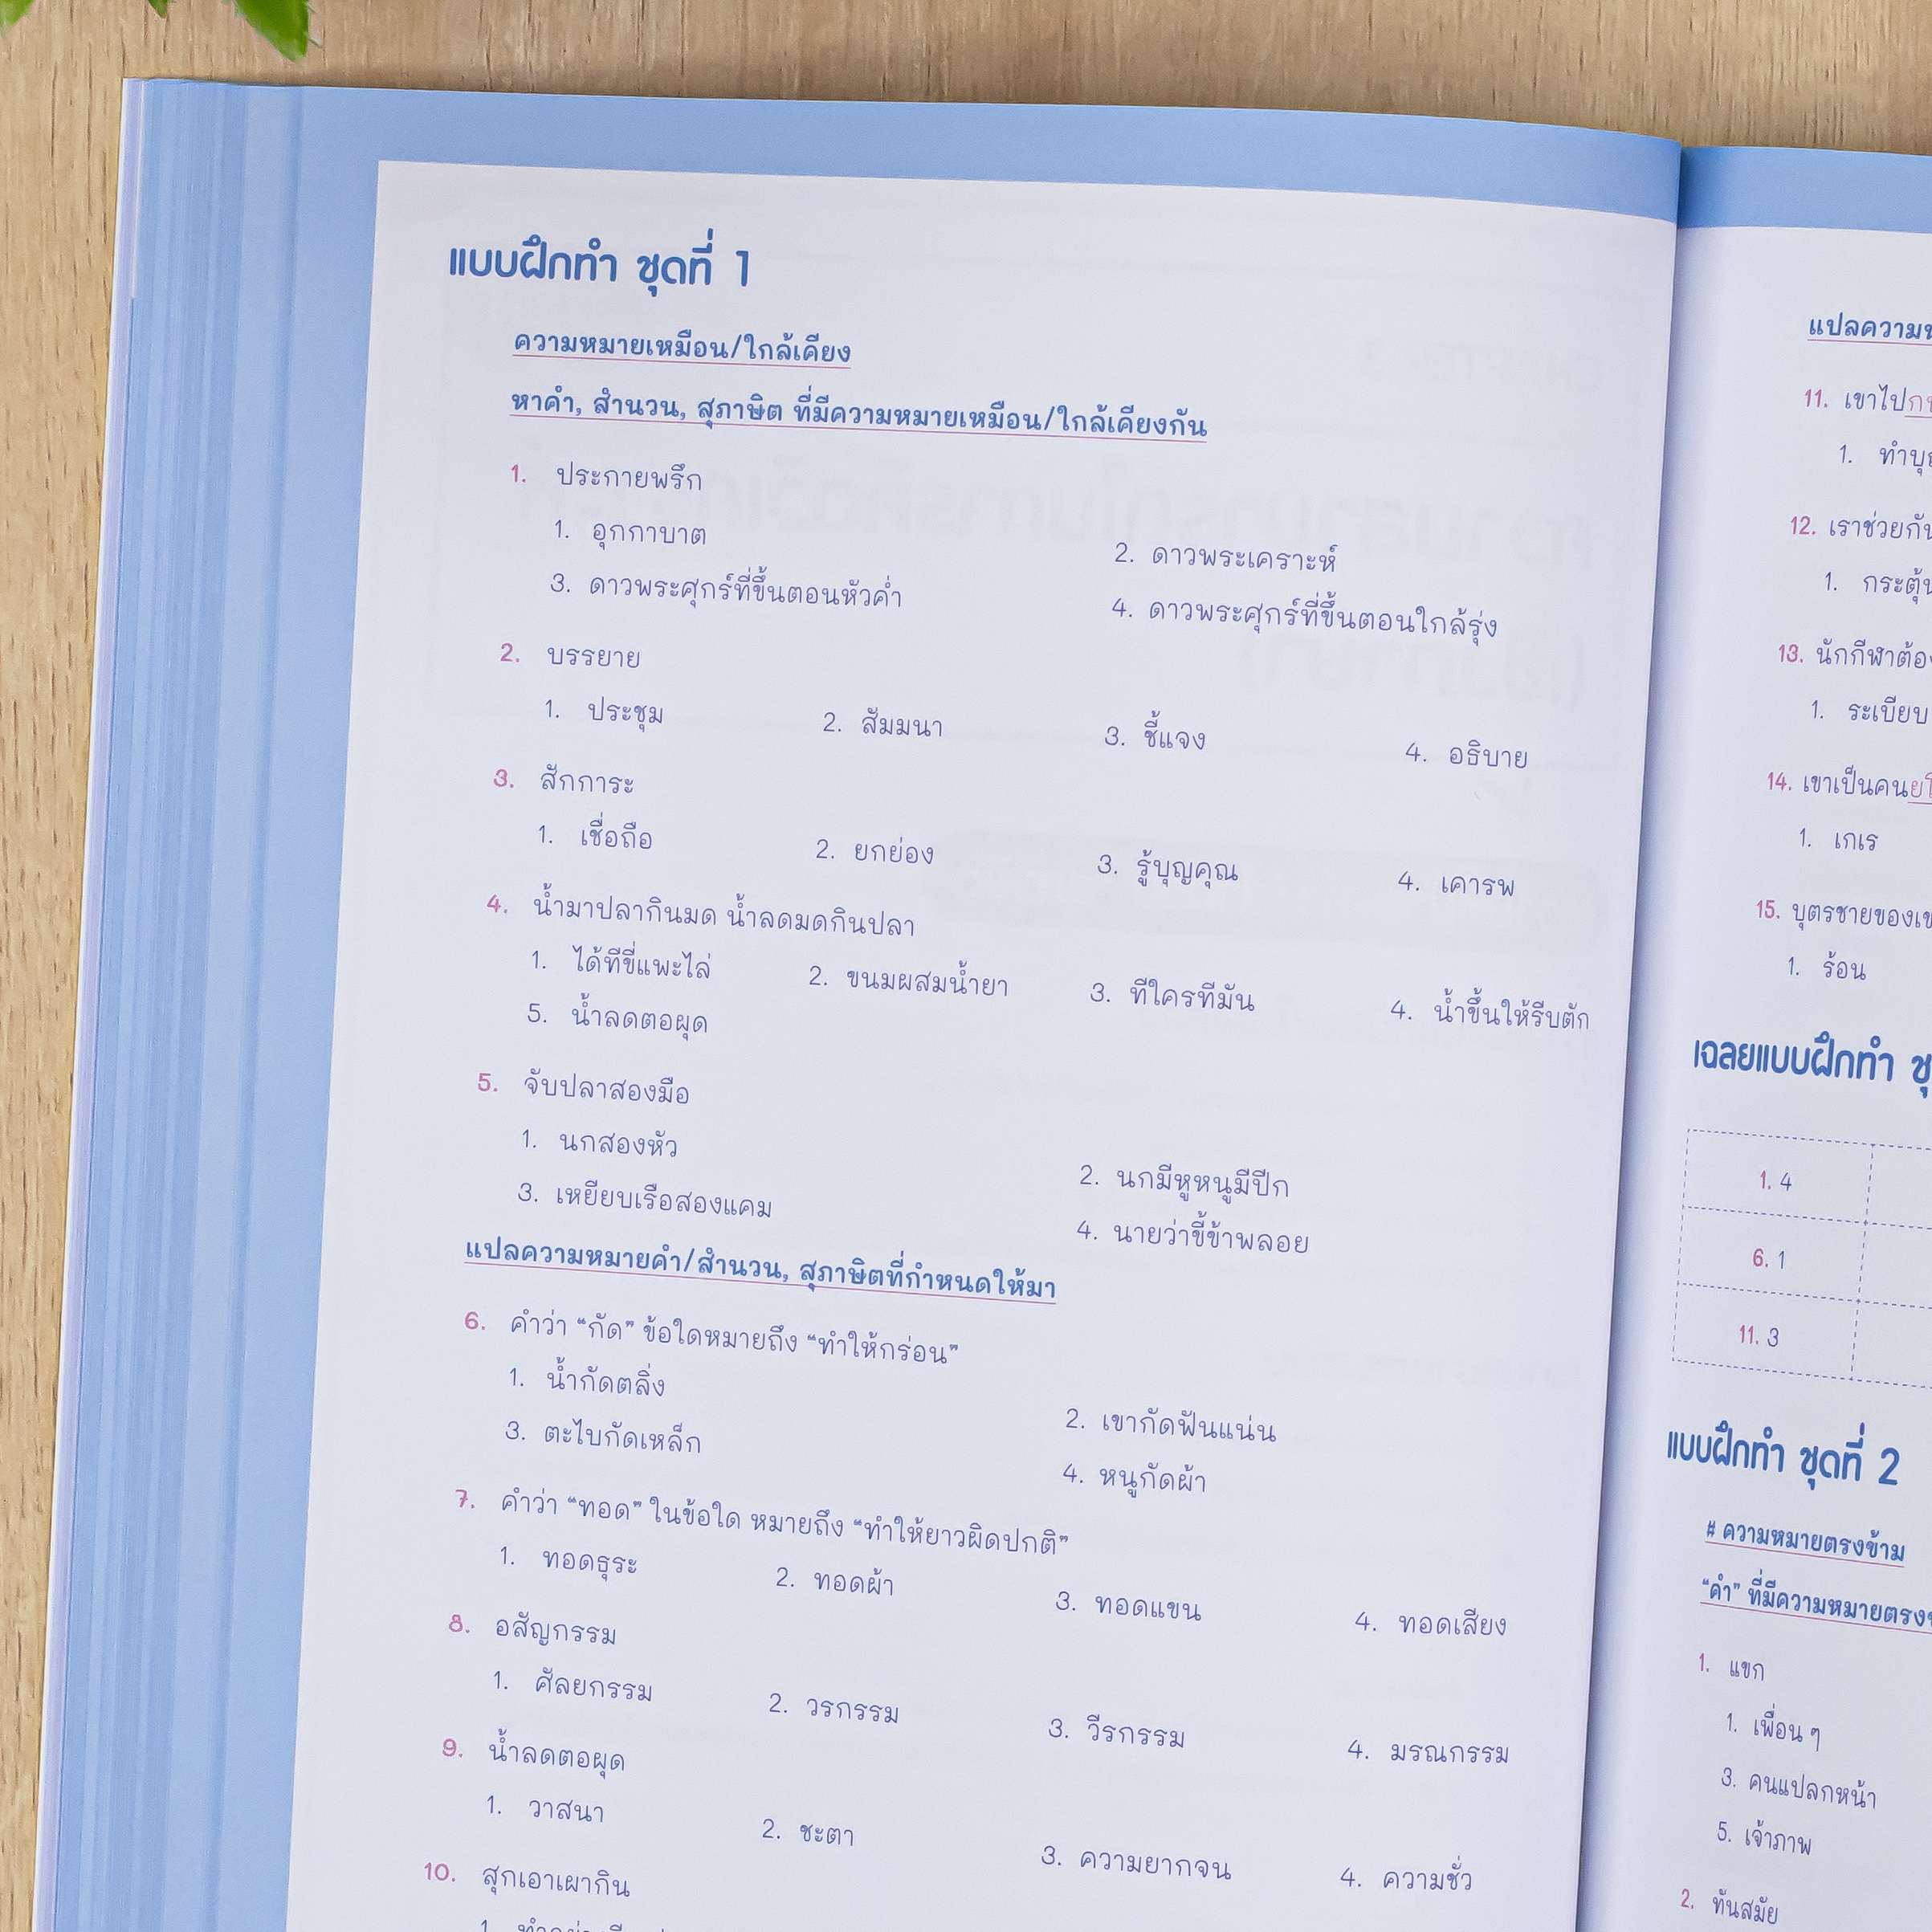 แบบฝึกทำ ชุดที่ 1
ความหมายเหมือน/ใกล้เคียง
หาคำ, สำนวน, สุภาษิต ที่มีความหมายเหมือน/ใกล้เคียงกัน
1. ประกายพรึก
1. อุกกาบาต 2. ดาวพระเคราะห์
3. ดาวพระศุกร์ที่ขึ้นตอนหัวค่ำ 4. ดาวพระศุกร์ที่ขึ้นตอนใกล้รุ่ง
2. บรรยาย
1. ประชุม 2. สัมมนา 3. ชี้แจง 4. อธิบาย
3. สักการะ
1. เชื่อถือ 2. ยกย่อง 3. รู้บุญคุณ 4. เคารพ
4. น้ำมาปลากินมด น้ำลดมดกินปลา
1. ได้ทีขี่แพะไล่ 2. ขนมผสมน้ำยา 3. ทีใครทีมัน 4. น้ำขึ้นให้รีบตัก
5. น้ำลดตอผุด
5. จับปลาสองมือ
1. นกสองหัว 2. นกมีหูหนูมีปีก
3. เหยียบเรือสองแคม 4. นายว่าขี้ข้าพลอย
แปลความหมายคำ/สำนวน, สุภาษิตที่กำหนดให้มา
6. คำว่า “กัด” ข้อใดหมายถึง “ทำให้กร่อน”
1. น้ำกัดตลิ่ง 2. เขากัดฟันแน่น
3. ตะไบกัดเหล็ก 4. หนูกัดผ้า
7. คำว่า “ทอด” ในข้อใด หมายถึง “ทำให้ยาวผิดปกติ”
1. ทอดธุระ 2. ทอดผ้า 3. ทอดแขน 4. ทอดเสียง
8. อสัญกรรม
1. ศัลยกรรม 2. วรกรรม 3. วีรกรรม 4. มรณกรรม
9. น้ำลดตอผุด
1. วาสนา 2. ชะตา 3. ความยากจน 4. ความชั่ว
10. สุกเอาเผากิน
1.
แปลความ
11. เขาไป
1.
12. เราช่วยกัน
1.
13. นักกีฬาต้อง
1. ระเบียบ
14. เขาเป็นคน
1. เกเร
15. บุตรชายของ
1. ร้อน
เฉลยแบบฝึกทำ
1. 4
6. 1
11. 3
แบบฝึกทำ ชุดที่ 2
# ความหมายตรงข้าม
“คำ” ที่มีความหมายตรง
1. แขก
1. เพื่อน ๆ
3. คนแปลกหน้า
5. เจ้าภาพ
2. ทันสมัย